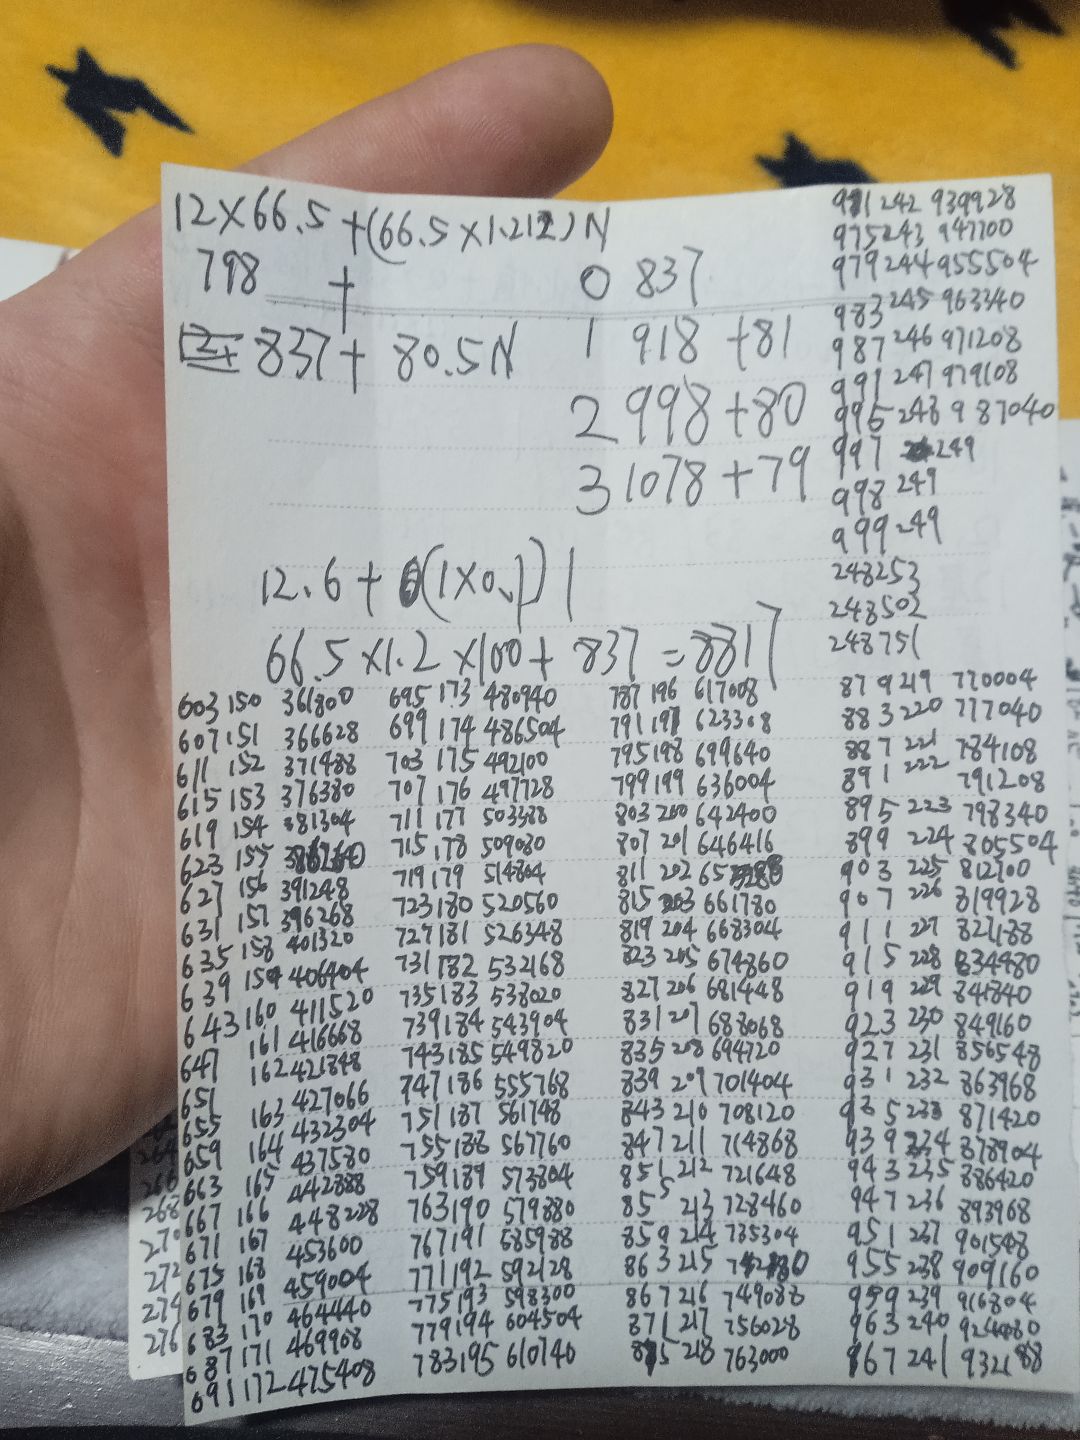 12×66.5+(66.5×1.212)N
798 + 0 837
837+ 80.5N 1 918 +81
2 998+80
3 1078+79
12.6+ (1×0.1) 1
66.5×1.2×100+ 837=8817
971 242 939928
975243 947700
979244955504
983 245 963340
987 246 971208
991 247 979108
995 248 987040
997 249
998 249
999 249
248253
248502
248751
603 150 361800
607151 366628
611 152 371488
615 153 376380
619 154 381304
623 155
627 156 391248
631 157 396268
635 158 401320
639 159 406404
643160 411520
647 161 416668
651 162421848
655 163 427066
659 164 432304
663 165 437580
667 166 442888
671 167 448228
675 168 453600
679 169 459004
683 170 464440
687171 469908
691172475408
695 173 480940
699 174 486504
703 175 492100
707 176 497728
711 177 503388
715 178 509080
719179 514804
723180 520560
727181 526348
731182 532168
735183 538020
739184 543904
743185549820
747 186 555768
751187 561748
755188 567760
759189 573804
763190 579880
767191 585988
771192 592128
775193 598300
779194 604504
783195 610740
787 196 617008
791197 623308
795198 699640
799199 636004
803 200 642400
807 201 646416
811 202
815 203 661780
819 204 668304
823 205 674860
827206 681448
831207 688068
835 208 694720
839 209701404
843 210 708120
847 211 714868
851 212 721648
855 213 728460
859 214 735304
863215
867216 749088
871 217 756028
875 218 763000
879219 770004
883220 777040
887 221 784108
891 222 791208
895 223 798340
899 224 805504
903 225 812700
907 226 819928
911 227 827188
915 228 834480
919 229 841840
923 230 849160
927 231 856548
931 232 863968
935 233 871420
939 234 878904
943 235 886420
947 236 893968
951 237 901548
955 238 909160
959 239 916804
963 240 924480
967 241 932188